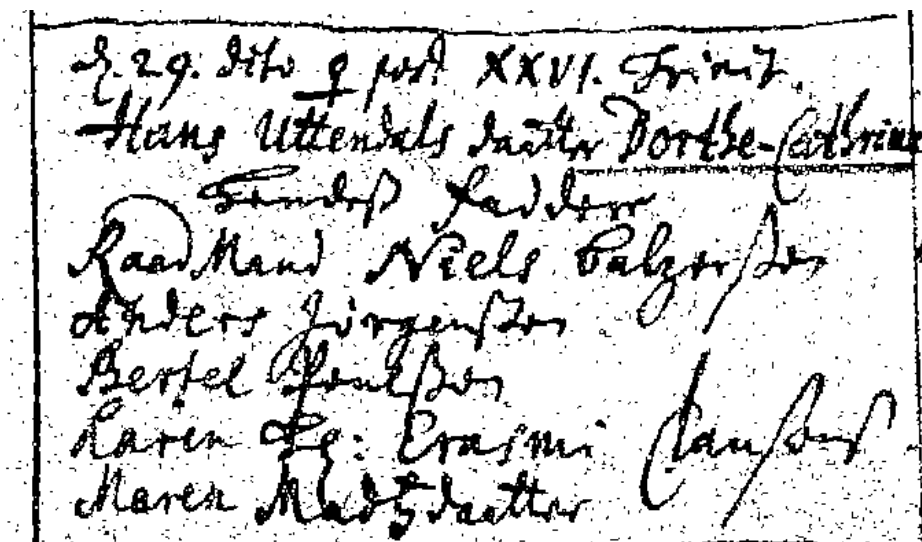 d. 29. dito ♀ post XXVI. Trinit.
Hans Uttendals daatter Dorthe-Cathrine
Hendeß Faddere
Raad Mand Niels Balzerßen
Anders Jörgenßen
Bertel Poulßen
Karen Sl: Erasmi Claußens
Maren Madtzdaatter